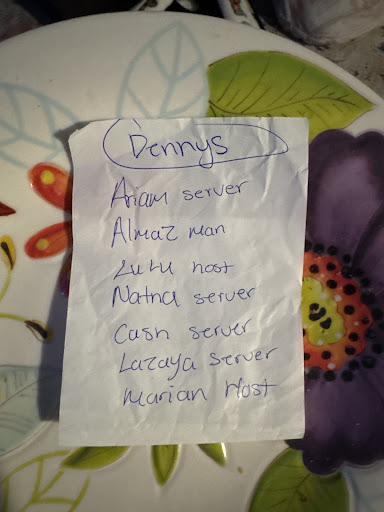 Dennys
Ariam server
Almaz man
Lulu host
Natna server
Cash server
Lazaya server
Marian Host